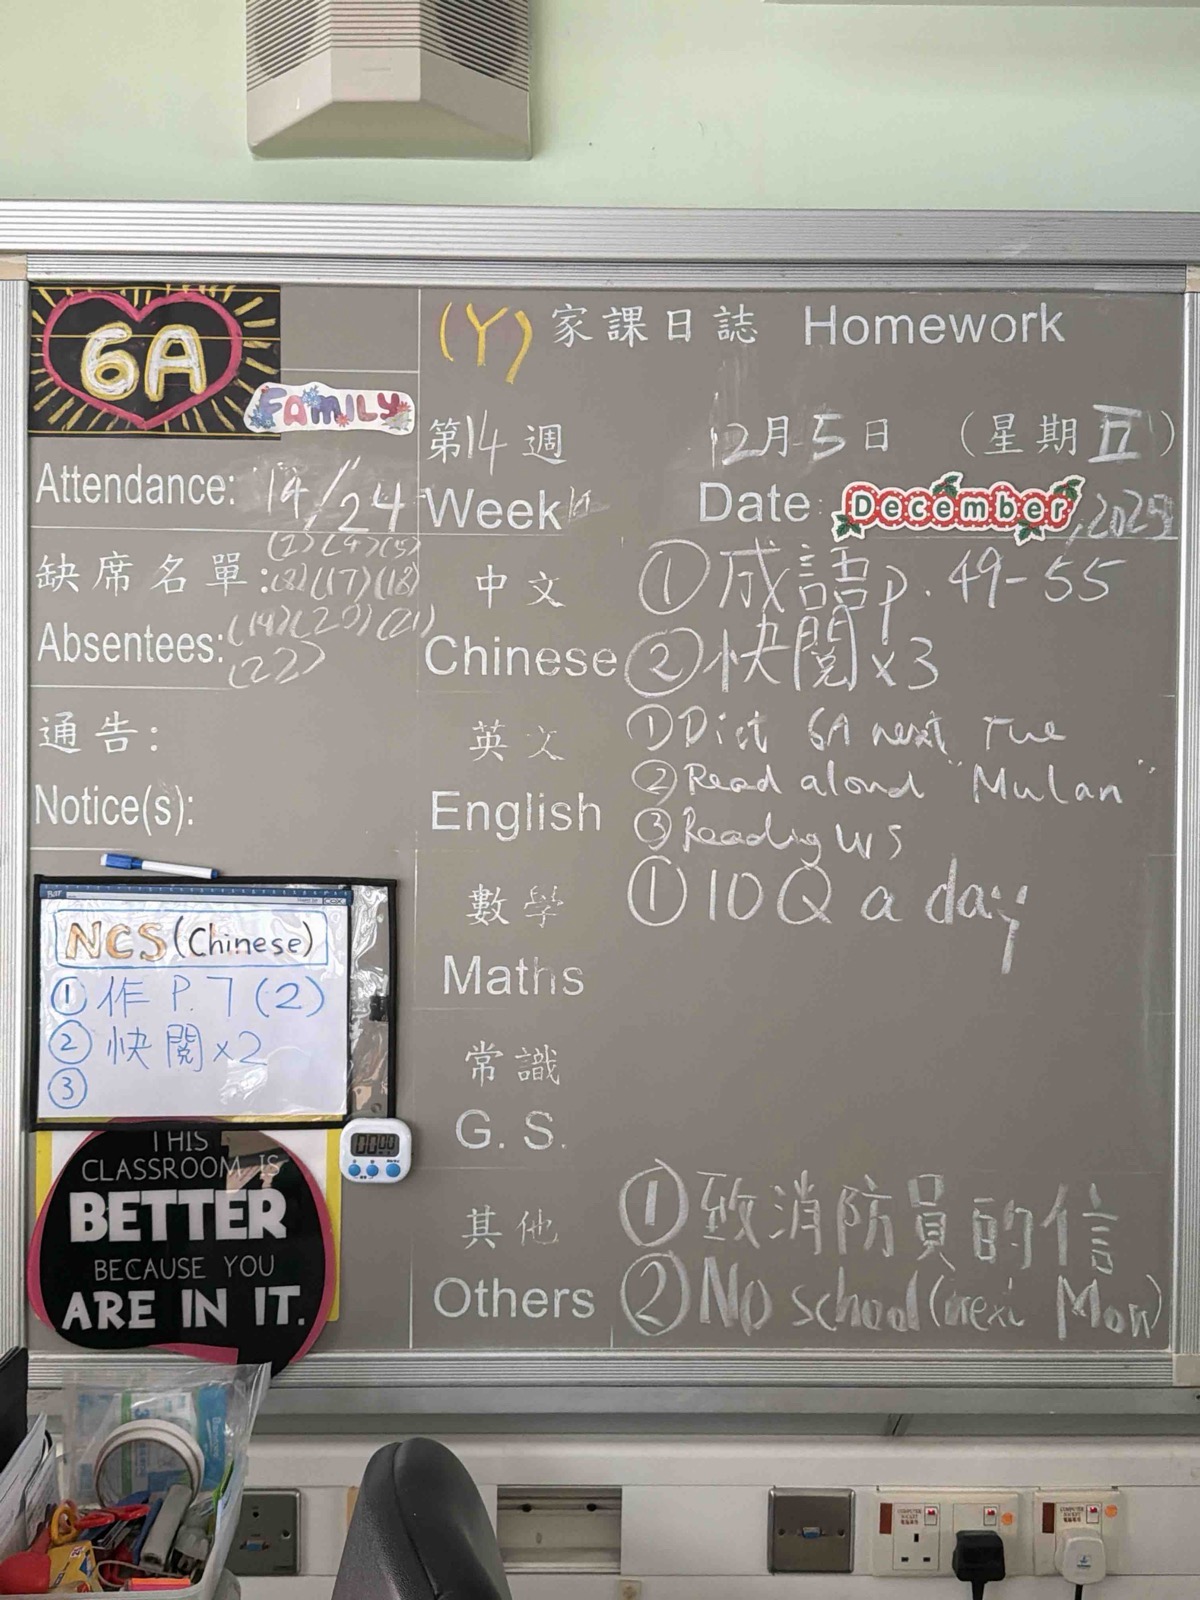 6A
FAMILY
Attendance: 14/24
缺席名單:
Absentees:
(17)(18)
(19)(20)(21)
(22)
通告:
Notice(s):
NCS (Chinese)
① 作 P.7 (2)
② 快閱x2
③
THIS
CLASSROOM IS
BETTER
BECAUSE YOU
ARE IN IT.
00:00
(Y) 家課日誌 Homework
第14週 12月5日 (星期五)
Week 14 Date: December, 2025
中文
Chinese
① 成語p. 49-55
② 快閱x3
英文
English
① Dict 6A next Tue
② Read aloud "Mulan"
③ Reading WS
數學
Maths
① 10 Q a day
常識
G. S.
其他
Others
① 致消防員的信
② No school (next Mon)
COMPUTER
COMPUTER